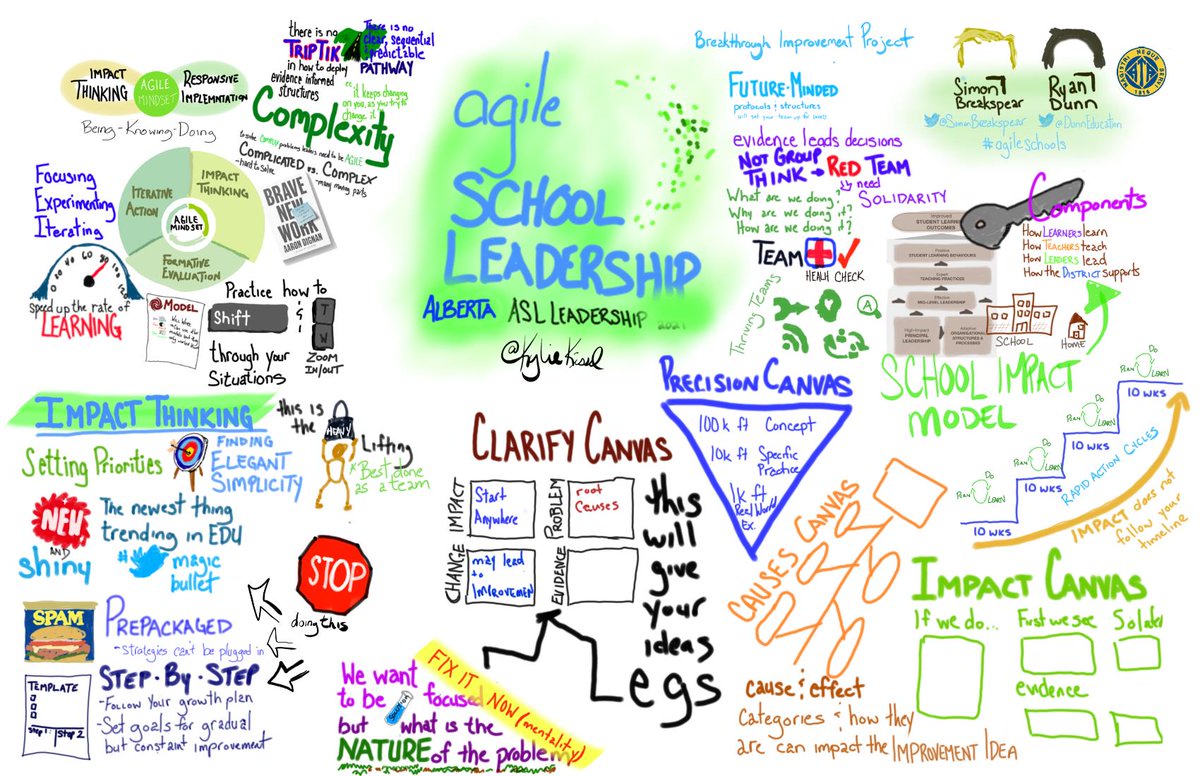 IMPACT
THINKING
AGILE
MINDSET
RESPONSIVE
IMPLEMNTATION
Being-Knowing-Doing
there is no
TRIPTIK
in how to deploy
evidence informed
structures
There is no
clear, sequential
predictable
PATHWAY
"it keeps changing
on you, as you try to
change it
Complexity
problems leaders need to be AGILE
COMPLICATED VS. COMPLEX
-hard to solve
-many moving parts
Focusing
Experimenting
Iterating
ITERATIVE
ACTION
IMPACT
THINKING
AGILE
MINDSET
FORMATIVE
EVALUATION
BRAVE
NEW
WORK
AARON DIGNAN
speed up the rate of
LEARNING
MODEL
Practice how to
Shift
&
ZOOM
IN/OUT
through your
Situations
agile
SCHOOL
LEADERSHIP
ALBERTA ASL LEADERSHIP 2021
Breakthrough Improvement Project
FUTURE-MINDED
protocols & structures
will set your team up for success
evidence leads decisions
NOT GROUP
THINK → RED TEAM
need
SOLIDARITY
What are we doing?
Why are we doing it?
How are we doing it?
TEAM
HEALTH CHECK
Thriving Teams
A
Simon
Breakspear
@SimonBreakspear
Ryan
Dunn
@DunnEducation
#agileschools
Components
How LEARNERS learn
How TEACHERS teach
How LEADERS lead
How the DISTRICT supports
Improved
STUDENT LEARNING
OUTCOMES
Positive
STUDENT LEARNING BEHAVIOURS
Expert
TEACHING PRACTICES
Effective
MID-LEVEL LEADERSHIP
High-Impact
PRINCIPAL
LEADERSHIP
Adaptive
ORGANISATIONAL
STRUCTURES
& PROCESSES
SCHOOL
HOME
SCHOOL IMPACT
MODEL
PLAN
Do
LEARN
10 WKS
PLAN
Do
LEARN
10 WKS
PLAN
Do
LEARN
10 WKS
PLAN
Do
LEARN
10 WKS
RAPID ACTION CYCLES
IMPACT does not
follow your
timeline
IMPACT THINKING
Setting Priorities
FINDING
ELEGANT
SIMPLICITY
this is
the
HEAVY
Lifting
*Best done
as a team
NEW
AND
shiny
The newest thing
trending in EDU
#
magic
bullet
STOP
doing this
SPAM
PREPACKAGED
- strategies can't be plugged in
STEP-BY-STEP
- Follow your growth plan
- Set goals for gradual
but constant improvement
TEMPLATE
step 1: step 2
CLARIFY CANVAS
IMPACT
Start
Anywhere
PROBLEM
root
Causes
CHANGE
may lead
to
IMPROVEMENT
EVIDENCE
this
will
give
your
ideas
Legs
We want
to be solution focused
but what is the
NATURE of the problem
FIX IT NOW (mentality)
PRECISION CANVAS
100k ft Concept
10k ft Specific
Practice
1k ft
Real World
Ex.
CAUSES CANVAS
cause & effect
Categories & how they
are can impact the IMPROVEMENT IDEA
IMPACT CANVAS
If we do...
First we see
So later
evidence